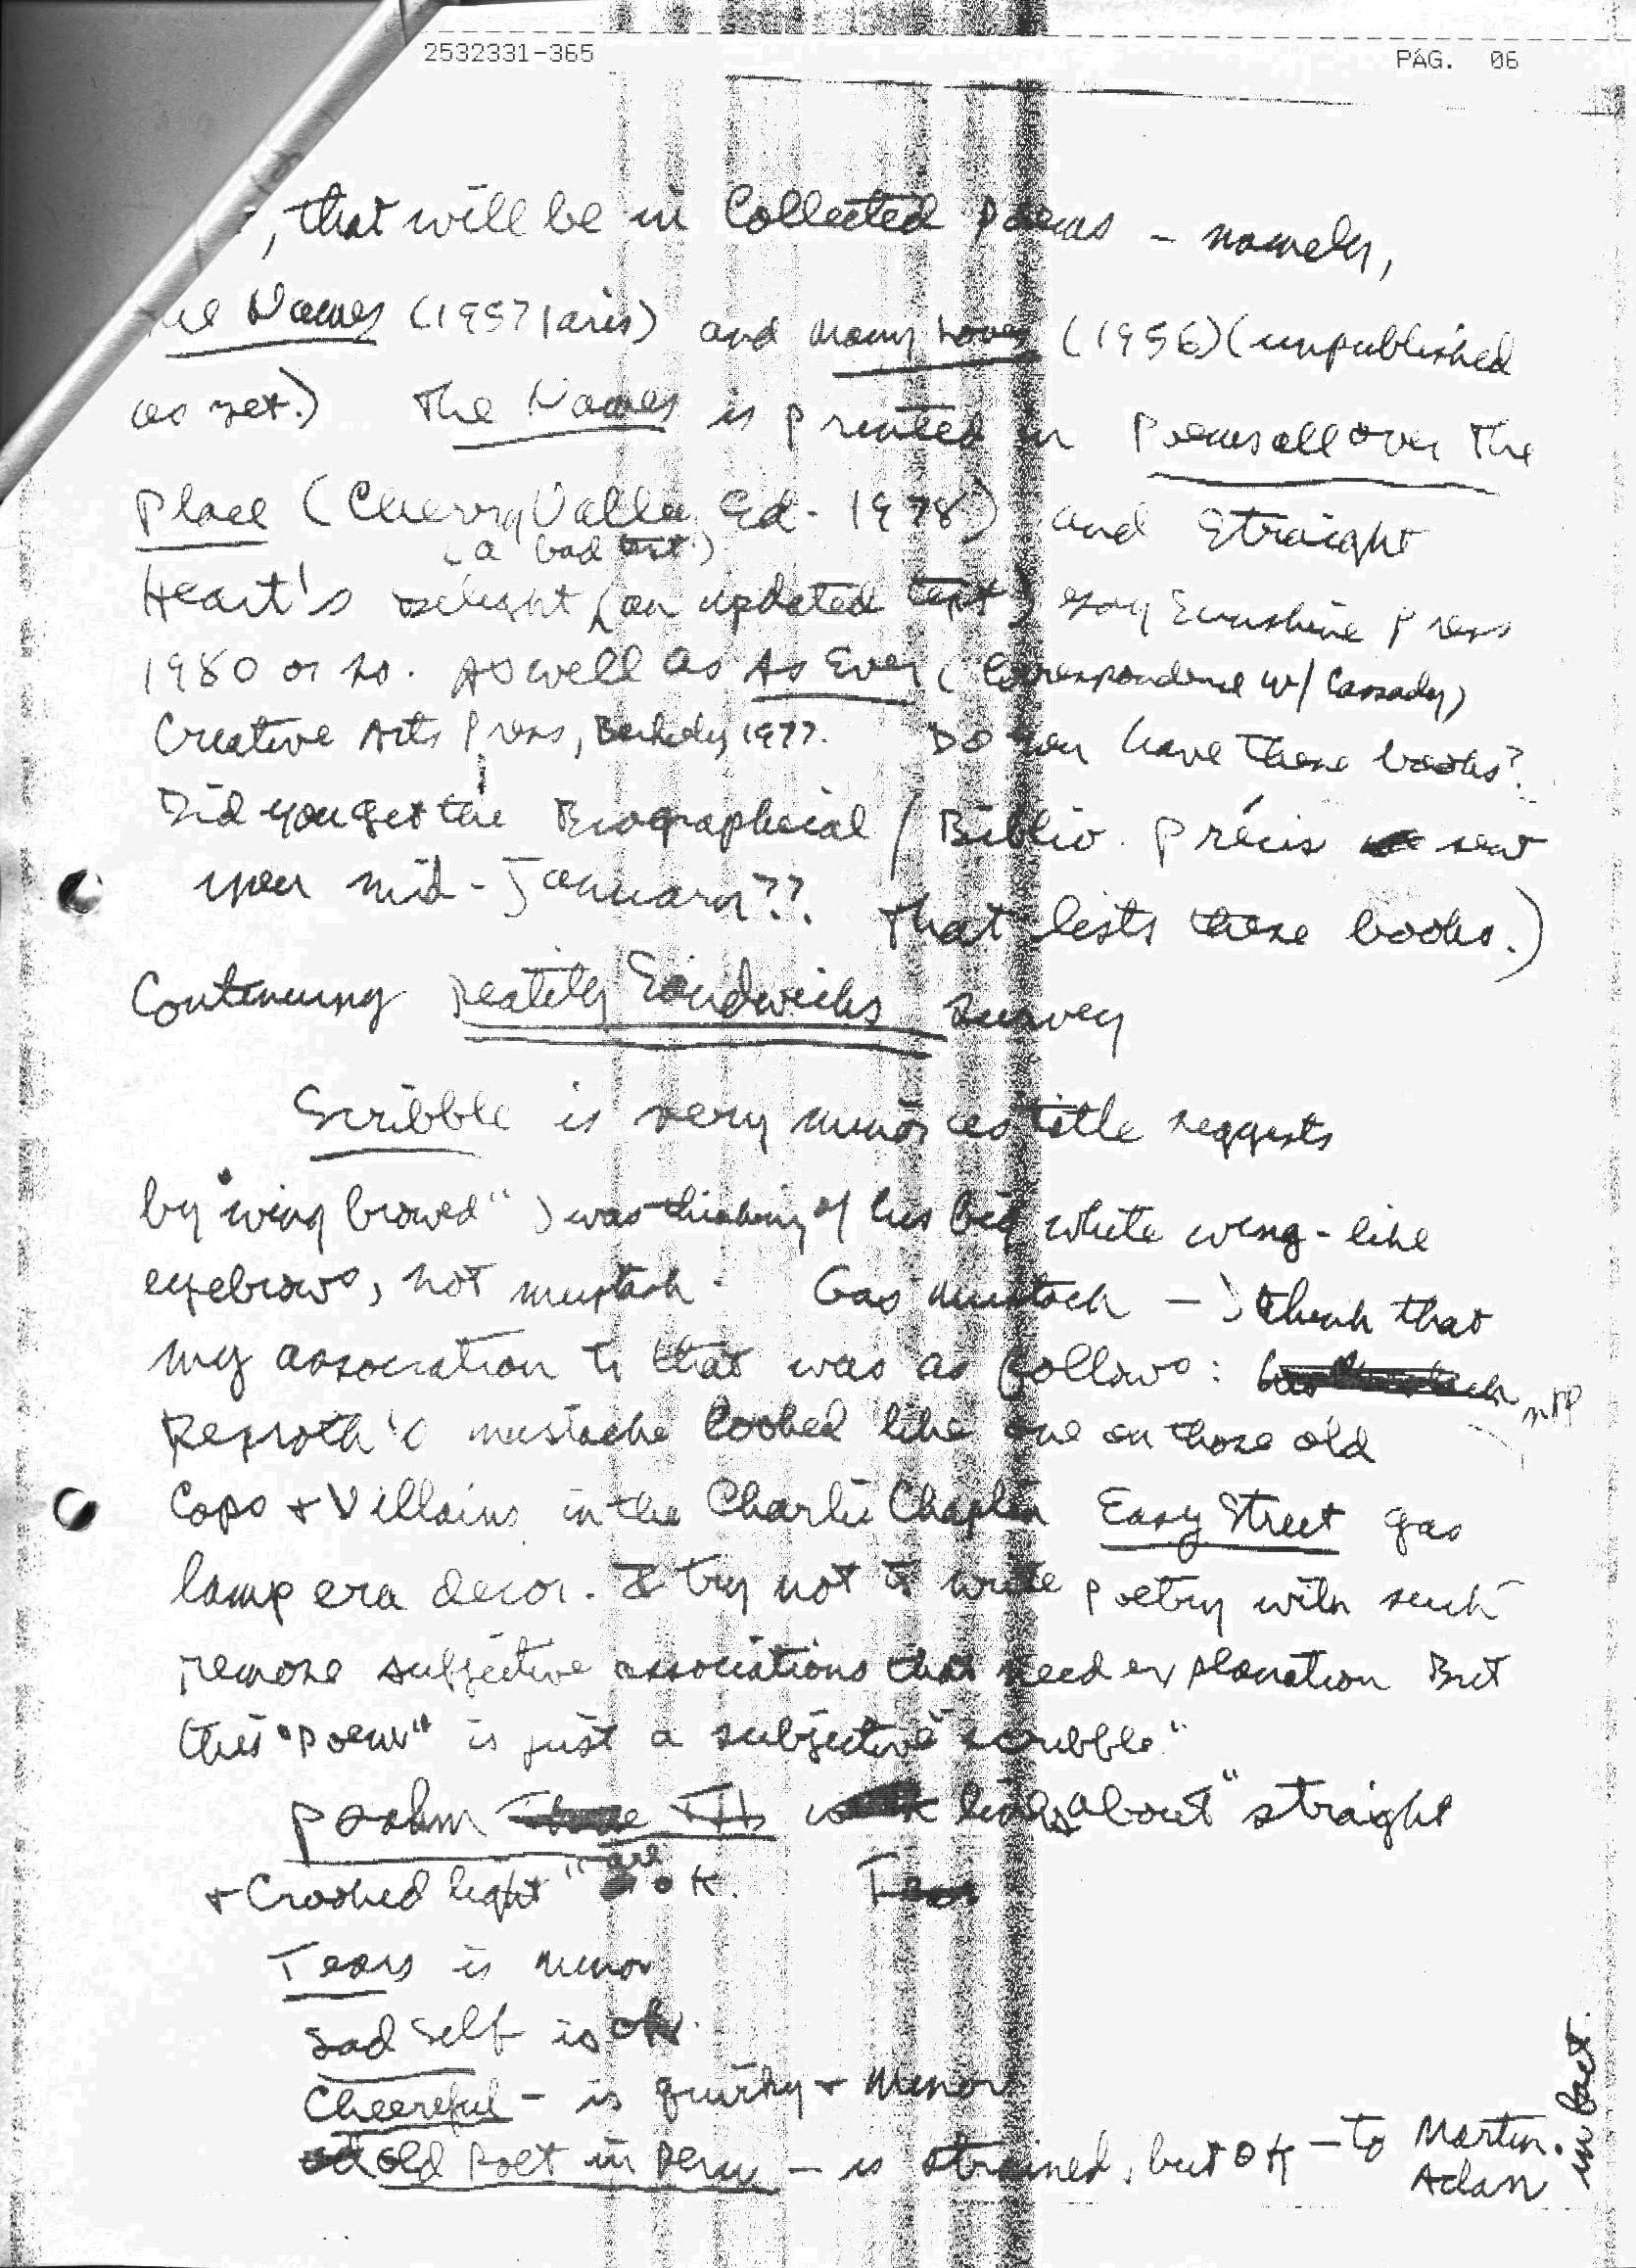 2532331-365 PÁG. 06
, that will be in Collected Poems – namely,
Names (1957 aris) and Many Loves (1956) (unpublished
as yet.) The Names is printed in Poems all over The
Place (Cherry Valley Ed. 1978) and Straight
(a bad text.)
Heart's Delight, (an updated text) Gay Sunshine Press
1980 or so. As well as As Ever (Correspondence w/ Cassady)
Creative Arts Press, Berkeley 1977. Do you have these books?
Did you get the Biographical / Biblio. Précis sent
you mid-January??. That lists these books.)
Continuing Reality Sandwichs Survey
Scribble is very minor as title suggests
by "wing browed" I was thinking of his big white wing-like
eyebrows, not mustach. Gas mustach – I think that
my association to that was as follows:
Rexroth's mustache looked like one on those old
Cops + Villains in the Charlie Chaplin Easy Street gas
lamp era decor. I try not to write poetry with such
remose subjective associations that need explanation But
this "poem" is just a subjective "scribble"
Psalm III lines about "straight
+ Crooked light" are O.K.
Tears is minor
Sad Self is ok.
Cheerful – is quirky + minor
old Poet in Peru – is strained, but OK – to Martin.
Adan
in fact.